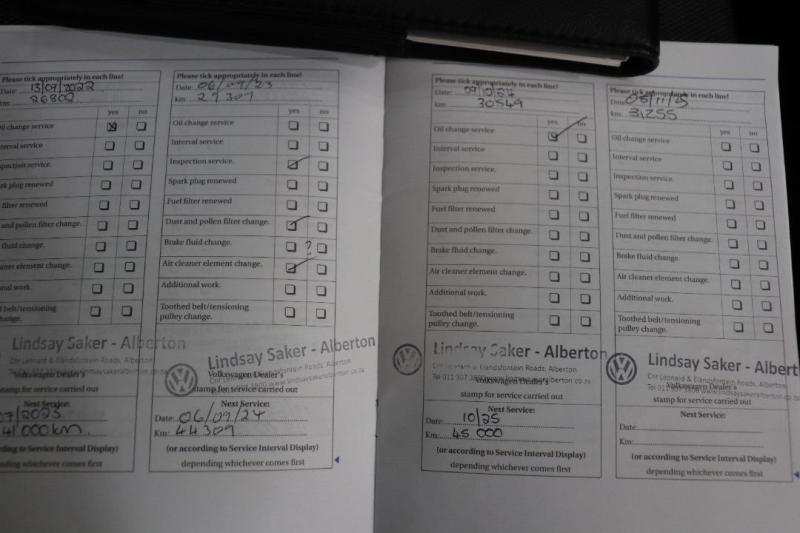 Please tick appropriately in each line!
Date: 13/09/2022
km: 26802
yes no
oil change service
interval service
inspection service.
spark plug renewed
filter renewed
and pollen filter change.
fluid change.
cleaner element change.
onal work.
d belt/tensioning
change.
Lindsay Saker - Alberton
Cnr Leonard & Elandsfontein Roads, Alberton
Volkswagen Dealer's
stamp for service carried out
Next Service:
/2023
41 000km.
ding to Service Interval Display)
depending whichever comes first
Please tick appropriately in each line!
Date: 06/09/23
km: 29309
yes no
Oil change service
Interval service
Inspection service.
Spark plug renewed
Fuel filter renewed
Dust and pollen filter change.
Brake fluid change. ?
Air cleaner element change.
Additional work.
Toothed belt/tensioning
pulley change.
Lindsay Saker - Alberton
Cnr Leonard & Elandsfontein Roads, Alberton
Volkswagen Dealer's
stamp for service carried out
Next Service:
Date: 06/09/24
Km: 44309
(or according to Service Interval Display)
depending whichever comes first
Please tick appropriately in each line!
Date: 09/10/24
km: 30549
yes no
Oil change service
Interval service
Inspection service.
Spark plug renewed
Fuel filter renewed
Dust and pollen filter change.
Brake fluid change.
Air cleaner element change.
Additional work.
Toothed belt/tensioning
pulley change.
Lindsay Saker - Alberton
Volkswagen Dealer's
stamp for service carried out
Next Service:
Date: 10/25
Km: 45 000
(or according to Service Interval Display)
depending whichever comes first
Please tick appropriately in each line!
Date: 05/11/25
km: 31255
yes no
Oil change service
Interval service
Inspection service.
Spark plug renewed
Fuel filter renewed
Dust and pollen filter change.
Brake fluid change.
Air cleaner element change.
Additional work.
Toothed belt/tensioning
pulley change.
Lindsay Saker - Albert
Cnr Leonard & Elandsfontein Roads, Alberton
Volkswagen Dealer's
stamp for service carried out
Next Service:
Date:
Km:
(or according to Service Interval Display)
depending whichever comes first